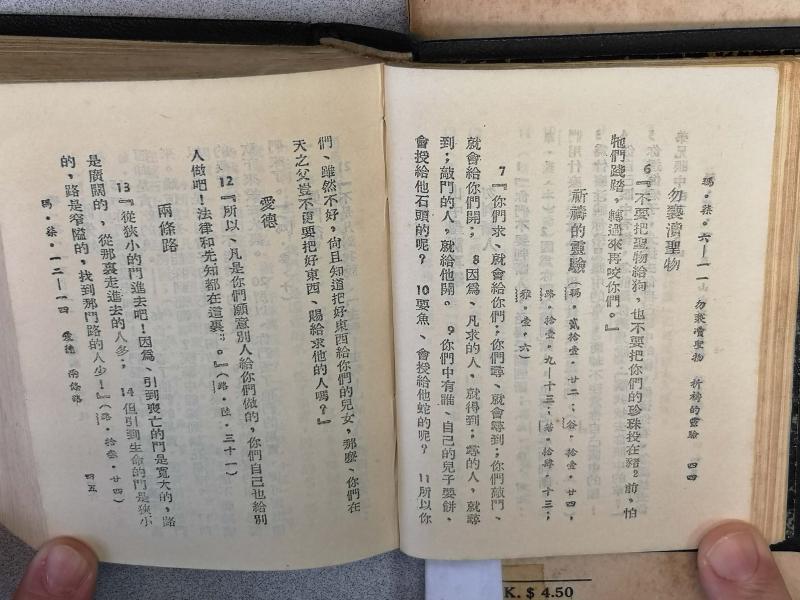 瑪·柒·六—一一 勿褻瀆聖物 祈禱的靈驗 四四
勿褻瀆聖物
6『不要把聖物給狗，也不要把你們的珍珠投在豬²前，怕
牠們踐踏，轉過來再咬你們。』
祈禱的靈驗（瑪·貳拾壹·廿二；谷·拾壹·廿四，
路·拾壹·九—十三；若·拾肆·十三；
雅·壹·六）
7『你們求、就會給你們；你們尋、就會尋到；你們敲門、
就會給你們開；8因爲、凡求的人、就得到；尋的人，就尋
到；敲門的人，就給他開。9你們中有誰、自己的兒子要餅、
會授給他石頭的呢？10要魚、會授給他蛇的呢？11所以你
們、雖然不好，尙且知道把好東西給你們的兒女，那麽、你們在
天之父豈不更要把好東西、賜給求他的人嗎？』
愛德
12『所以、凡是你們願意別人給你們做的，你們自己也給別
人做吧！法律和先知都在這裏³。』（路·陸·三十一）
兩條路
13『從狹小的門進去吧！因爲、引到喪亡的門是寬大的，路
是廣闊的，從那裏走進去的人多；14但引到生命的門是狹小
的，路是窄隘的，找到那門路的人少！』（路·拾叁·廿四）
瑪·柒·一二—一四 愛德 兩條路 四五
K. $ 4.50